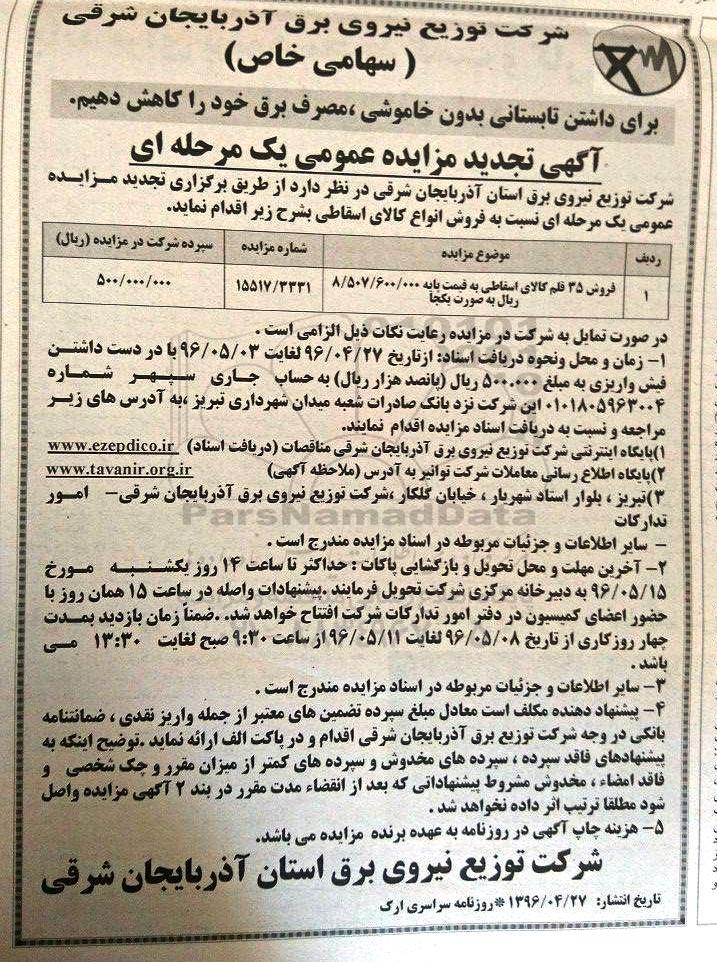 شرکت توزیع نیروی برق آذربایجان شرقی
( سهامی خاص)
برای داشتن تابستانی بدون خاموشی ،مصرف برق خود را کاهش دهیم.
آگهی تجدید مزایده عمومی یک مرحله ای
شرکت توزیع نیروی برق استان آذربایجان شرقی در نظر دارد از طریق برگزاری تجدید مزایده
عمومی یک مرحله ای نسبت به فروش انواع کالای اسقاطی بشرح زیر اقدام نماید.
ردیف موضوع مزایده شماره مزایده سپرده شرکت در مزایده (ریال)
۱ فروش ۳۵ قلم کالای اسقاطی به قیمت پایه ۸/۵۰۷/۶۰۰/۰۰۰ ۱۵۵۱۷/۳۳۳۱ ۵۰۰/۰۰۰/۰۰۰
ریال به صورت یکجا
در صورت تمایل به شرکت در مزایده رعایت نکات ذیل الزامی است .
۱- زمان و محل ونحوه دریافت اسناد: ازتاریخ ۹۶/۰۴/۲۷ لغایت ۹۶/۰۵/۰۳ با در دست داشتن
فیش واریزی به مبلغ ۵۰۰.۰۰۰ ریال (پانصد هزار ریال) به حساب جاری سپهر شماره
۰۱۰۱۸۰۵۹۶۳۰۰۴ این شرکت نزد بانک صادرات شعبه میدان شهرداری تبریز ،به آدرس های زیر
مراجعه و نسبت به دریافت اسناد مزایده اقدام نمایند.
۱)پایگاه اینترنتی شرکت توزیع نیروی برق آذربایجان شرقی مناقصات (دریافت اسناد) www.ezepdico.ir
۲)پایگاه اطلاع رسانی معاملات شرکت توانیر به آدرس (ملاحظه آگهی) www.tavanir.org.ir
۳)تبریز ، بلوار استاد شهریار ، خیابان گلکار ،شرکت توزیع نیروی برق آذربایجان شرقی- امور
تدارکات
ParsNamadData
- سایر اطلاعات و جزئیات مربوطه در اسناد مزایده مندرج است .
۲- آخرین مهلت و محل تحویل و بازگشایی پاکات : حداکثر تا ساعت ۱۴ روز یکشنبه مورخ
۹۶/۰۵/۱۵ به دبیرخانه مرکزی شرکت تحویل فرمایند .پیشنهادات واصله در ساعت ۱۵ همان روز با
حضور اعضای کمیسیون در دفتر امور تدارکات شرکت افتتاح خواهد شد. .ضمناً زمان بازدید بمدت
چهار روزکاری از تاریخ ۹۶/۰۵/۰۸ لغایت ۹۶/۰۵/۱۱ از ساعت ۹:۳۰ صبح لغایت ۱۳:۳۰ می
باشد .
۳- سایر اطلاعات و جزئیات مربوطه در اسناد مزایده مندرج است .
۴- پیشنهاد دهنده مکلف است معادل مبلغ سپرده تضمین های معتبر از جمله واریز نقدی ، ضمانتنامه
بانکی در وجه شرکت توزیع برق آذربایجان شرقی اقدام و در پاکت الف ارائه نماید .توضیح اینکه به
پیشنهادهای فاقد سپرده ، سپرده های مخدوش و سپرده های کمتر از میزان مقرر و چک شخصی و
فاقد امضاء ، مخدوش مشروط پیشنهاداتی که بعد از انقضاء مدت مقرر در بند ۲ آگهی مزایده واصل
شود مطلقا ترتیب اثر داده نخواهد شد .
۵- هزینه چاپ آگهی در روزنامه به عهده برنده مزایده می باشد.
شرکت توزیع نیروی برق استان آذربایجان شرقی
تاریخ انتشار: ۱۳۹۶/۰۴/۲۷ * روزنامه سراسری ارک